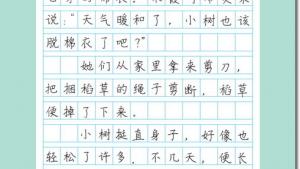 说："天气暖和了，小树也该
脱棉衣了吧？"
她们从家里拿来剪刀，
把捆稻草的绳子剪断，稻草
便掉了下来。
小树挺直身子，好像也
轻松了许多，不几天，便长